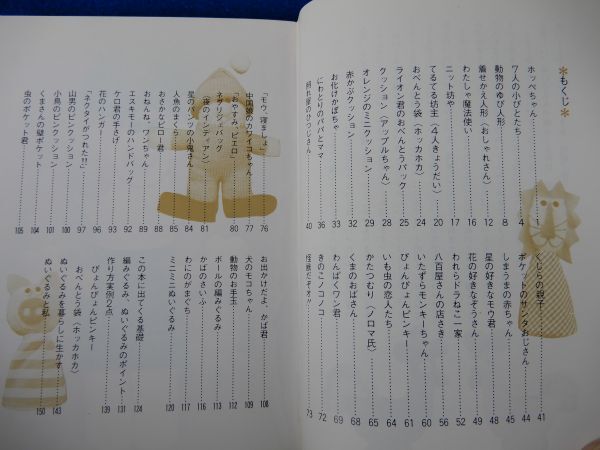 もくじ
ホッペちゃん 1
7人の小びとたち 4
動物のゆび人形 8
着せかえ人形〈おしゃれさん〉 12
わたしゃ魔法使い 16
ニット坊や 17
てるてる坊主〈4人きょうだい〉 20
おべんとう袋〈ホッカホカ〉 24
ライオン君のおべんとうパック 25
クッション〈アップルちゃん〉 28
オレンジのミニクッション 29
赤かぶクッション 32
お化けかぼちゃ 33
にわとりのパパとママ 36
40
くじらの親子 41
ポケットのサンタおじさん 44
しまうまの赤ちゃん 45
星の好きなモウ君 48
花の好きなぞうさん 49
われらドラねこ一家 52
八百屋さんの店さき 53
いたずらモンキーちゃん 56
ぴょんぴょんピンキー 57
いも虫の恋人たち 60
かたつむり〈ノロマ氏〉 61
くまのおばさん 64
かえるのおばけ 65
わんぱくワン君 68
きのこノコノコ 69
72
73
「モウ、寝ましょ」 76
中国娘のカワイコちゃん 77
「おやすみ、ピエロ」 80
〈夜のインディアン〉 81
ネグリジェバッグ
星のパンツの小鬼さん 84
人魚のまくら 85
おさかなピロー君 88
おねんね、ワンちゃん 89
エスキモーのハンドバッグ 92
ケロ君の手さげ 93
花のハンガー 96
「ネクタイがつれた!!」 97
山男のピンクッション 100
小鳥のピンクッション 101
くまさんの壁ポケット 104
虫のポケット君 105
お出かけだよ、かば君 108
犬のモコちゃん 109
動物のお手玉 112
ボールの編みぐるみ 113
かばのさいふ 116
わにのがまぐち 117
ミニミニぬいぐるみ 120
この本に出てくる基礎 124
編みぐるみ、ぬいぐるみのポイント 131
作り方実例2点 139
ぴょんぴょんピンキー
おべんとう袋〈ホッカホカ〉
ぬいぐるみを暮らしに生かす 143
ぬいぐるみと私 150